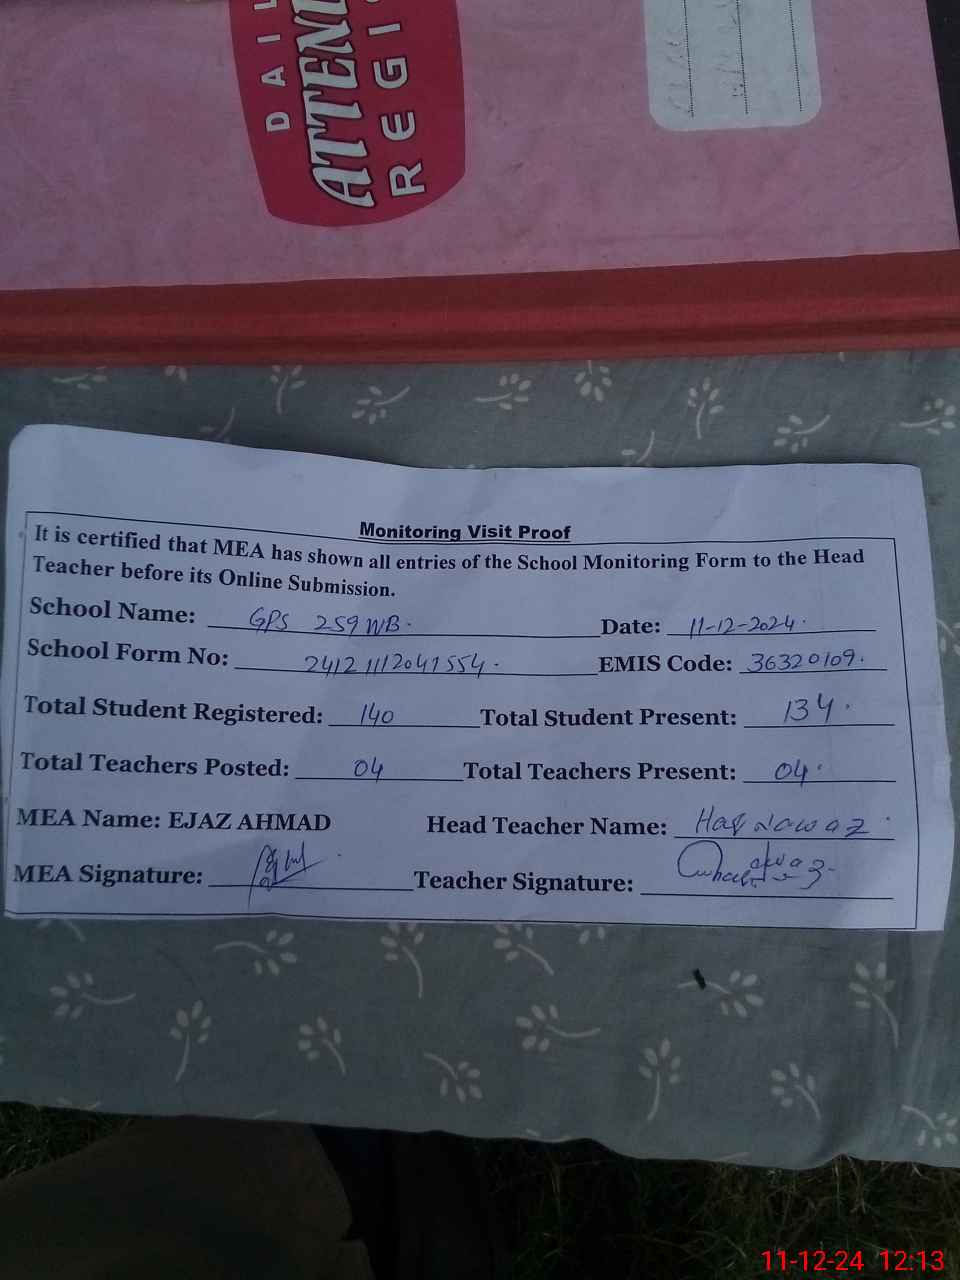 DAIL
ATTEND
REGI
Monitoring Visit Proof
It is certified that MEA has shown all entries of the School Monitoring Form to the Head
Teacher before its Online Submission.
School Name: GPS 259 WB. Date: 11-12-2024.
School Form No: 24121112041554. EMIS Code: 36320109.
Total Student Registered: 140 Total Student Present: 134.
Total Teachers Posted: 04 Total Teachers Present: 04.
MEA Name: EJAZ AHMAD Head Teacher Name: Haq Nawaz
MEA Signature: Teacher Signature:
11-12-24 12:13